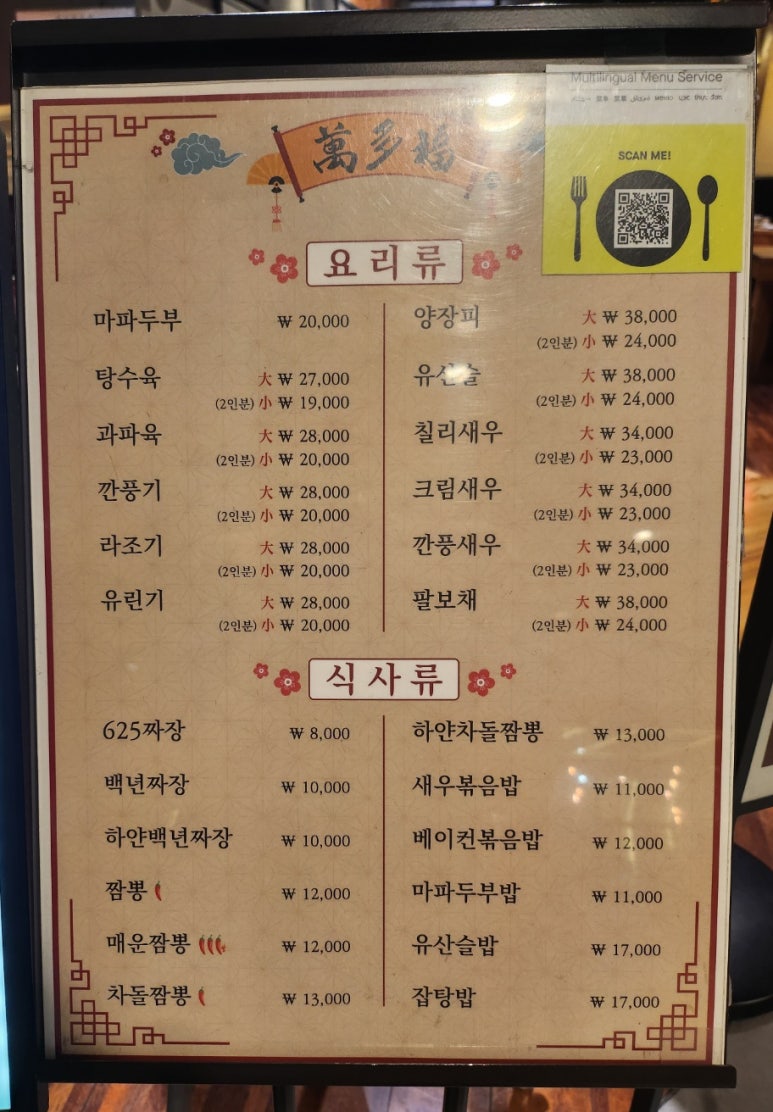 Multilingual Menu Service
SCAN ME!
萬多福
요리류
마파두부 ₩ 20,000
탕수육 大 ₩ 27,000
(2인분) 小 ₩ 19,000
과파육 大 ₩ 28,000
(2인분) 小 ₩ 20,000
깐풍기 大 ₩ 28,000
(2인분) 小 ₩ 20,000
라조기 大 ₩ 28,000
(2인분) 小 ₩ 20,000
유린기 大 ₩ 28,000
(2인분) 小 ₩ 20,000
양장피 大 ₩ 38,000
(2인분) 小 ₩ 24,000
유산슬 大 ₩ 38,000
(2인분) 小 ₩ 24,000
칠리새우 大 ₩ 34,000
(2인분) 小 ₩ 23,000
크림새우 大 ₩ 34,000
(2인분) 小 ₩ 23,000
깐풍새우 大 ₩ 34,000
(2인분) 小 ₩ 23,000
팔보채 大 ₩ 38,000
(2인분) 小 ₩ 24,000
식사류
625짜장 ₩ 8,000
백년짜장 ₩ 10,000
하얀백년짜장 ₩ 10,000
짬뽕 ₩ 12,000
매운짬뽕 ₩ 12,000
차돌짬뽕 ₩ 13,000
하얀차돌짬뽕 ₩ 13,000
새우볶음밥 ₩ 11,000
베이컨볶음밥 ₩ 12,000
마파두부밥 ₩ 11,000
유산슬밥 ₩ 17,000
잡탕밥 ₩ 17,000